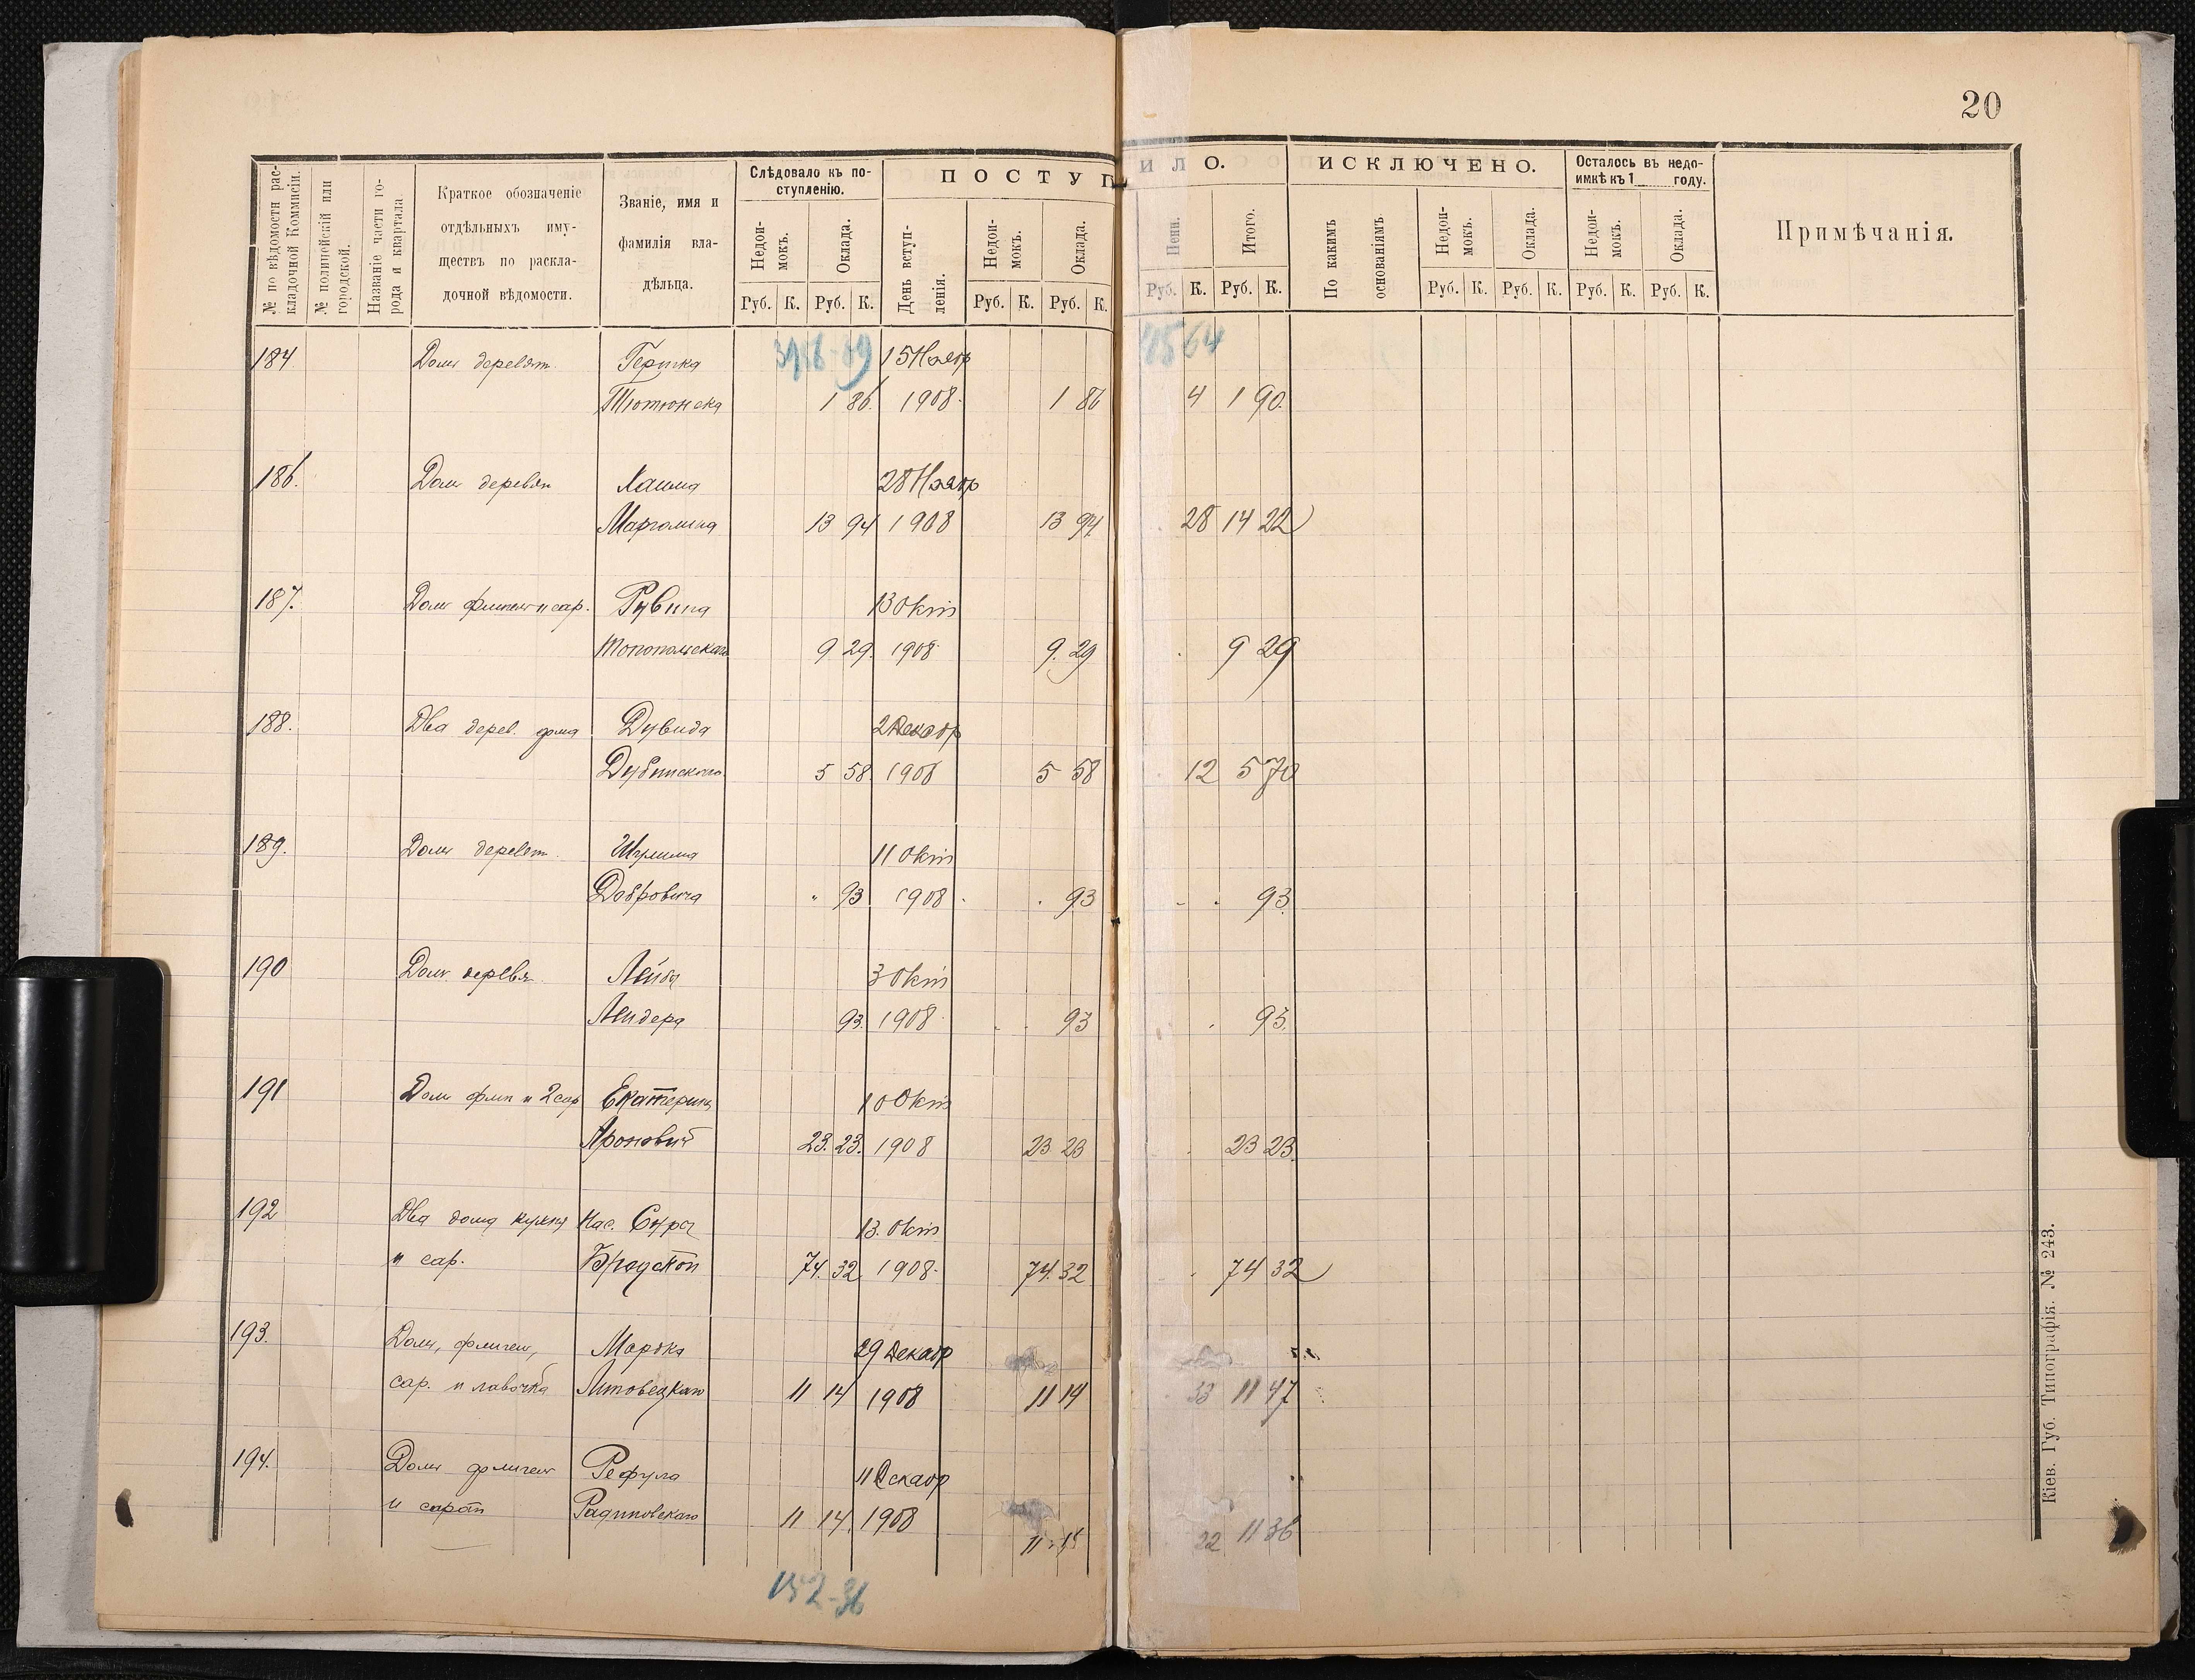 20
№ по вѣдомости рас-
кладочной Коммисіи.
№ полицейскій или
городской.
Названіе части го-
рода и квартала
Краткое обозначеніе
отдѣльныхъ иму-
ществъ по раскла-
дочной вѣдомости.
Званіе, имя и
фамилія вла-
дѣльца.
Слѣдовало къ по-
ступленію.
Недои-
мокъ.
Оклада.
Руб. К. Руб. К.
ПОСТУП
День вступ-
ленія.
Недои-
мокъ.
Оклада.
Руб. К. Руб. К.
ИЛО.
Пени.
Итого.
Руб. К. Руб. К.
ИСКЛЮЧЕНО.
По какимъ
основаніямъ.
Недои-
мокъ.
Оклада.
Руб. К. Руб. К.
Осталось въ недо-
имкѣ къ 1 году.
Недои-
мокъ.
Оклада.
Руб. К. Руб. К.
Примѣчанія.
184 Домъ деревян. Гершка 15 Ноябр
Тютюнска 1 86 1908 1 86 4 1 90
186. Домъ деревян Хаима 28 Ноябр
Марголина 13 94 1908 13 94 28 14 22
187. Домъ флигел и сар. Рувина 13 Окт
9 29. 1908 9. 29 9 29
188. Два дерев. дома Дувида 2 Декабр
Дубинского 5 58 1908 5 58 12 5 70
189. Домъ деревян. Шулима 11 Окт
Добровича 93 1908 93 93
190 Домъ деревя. Лейбы 3 Окт
Лейдера 93. 1908 93 93.
191 Домъ флиг и 2 сар Екатерины 10 Окт
Яроновий 23. 23. 1908 23 23 23 23.
192 Два дома кухня Нас. Суры 13. Окт
и сар. 74. 32 1908 74. 32 74 32
193. Домъ, флигел, Мордка 29 Декабр
сар. и лавочка Литовецкаго 11 14 1908 11 14 33 11 47
194. Домъ флигел Рефула 11 Декабр
и сарай 11 14. 1908
22 11 36
152-36
Кіев. Губ. Типографія. № 243.